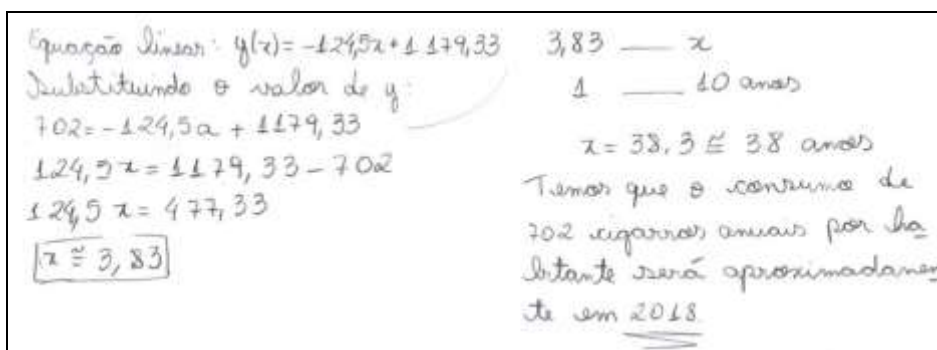 Equação linear: y(x) = -124,5x + 1 179,33
Substituindo o valor de y:
702 = -124,5x + 1179,33
124,5x = 1179,33 - 702
124,5 x = 477,33
x ≅ 3,83
3,83 — x
1 — 10 anos
x = 38,3 ≅ 38 anos
Temos que o consumo de
702 cigarros anuais por ha
bitante será aproximadamen
te em 2018